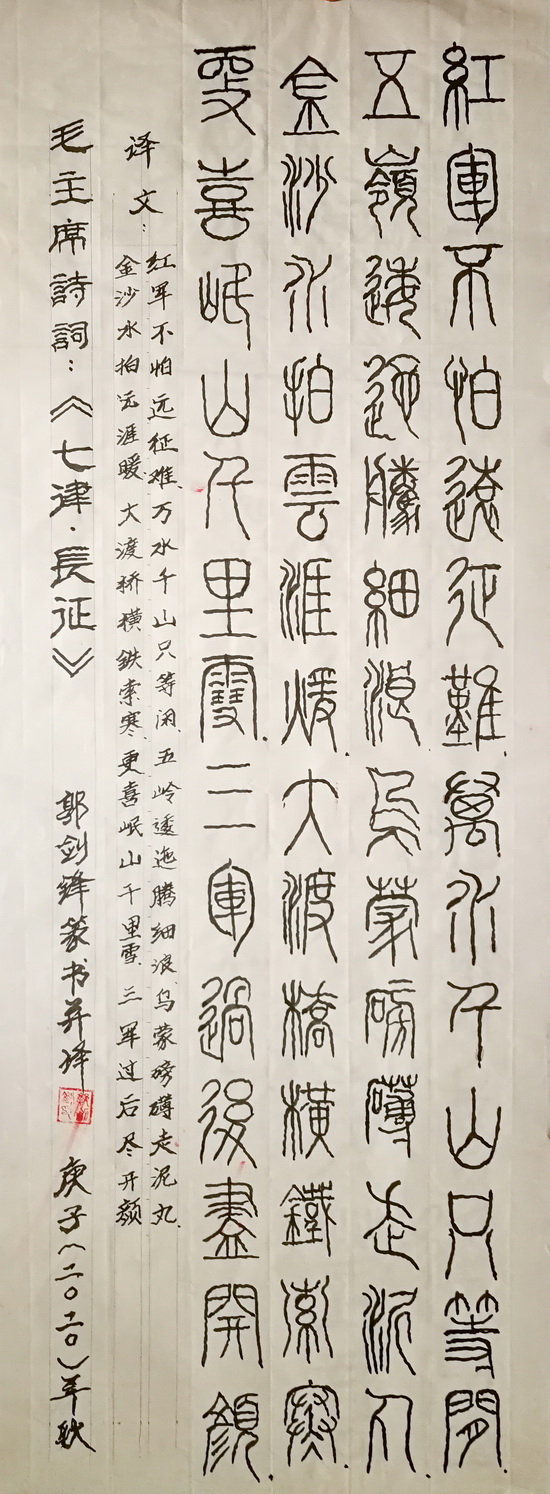 紅軍不怕遠征難.萬水千山只等閒.
五嶺逶迤騰細浪.烏蒙磅礴走泥丸.
金沙水拍雲涯煖.大渡橋橫鐵索寒.
更喜岷山千里雪.三軍過後盡開顏.
译文:
红军不怕远征难.万水千山只等闲.五岭逶迤腾细浪.乌蒙磅礴走泥丸.
金沙水拍云涯暖.大渡桥横铁索寒.更喜岷山千里雪.三军过后尽开颜
毛主席詩詞:《七律·長征》 郭剑锋篆书并译 庚子(二〇二〇)年秋